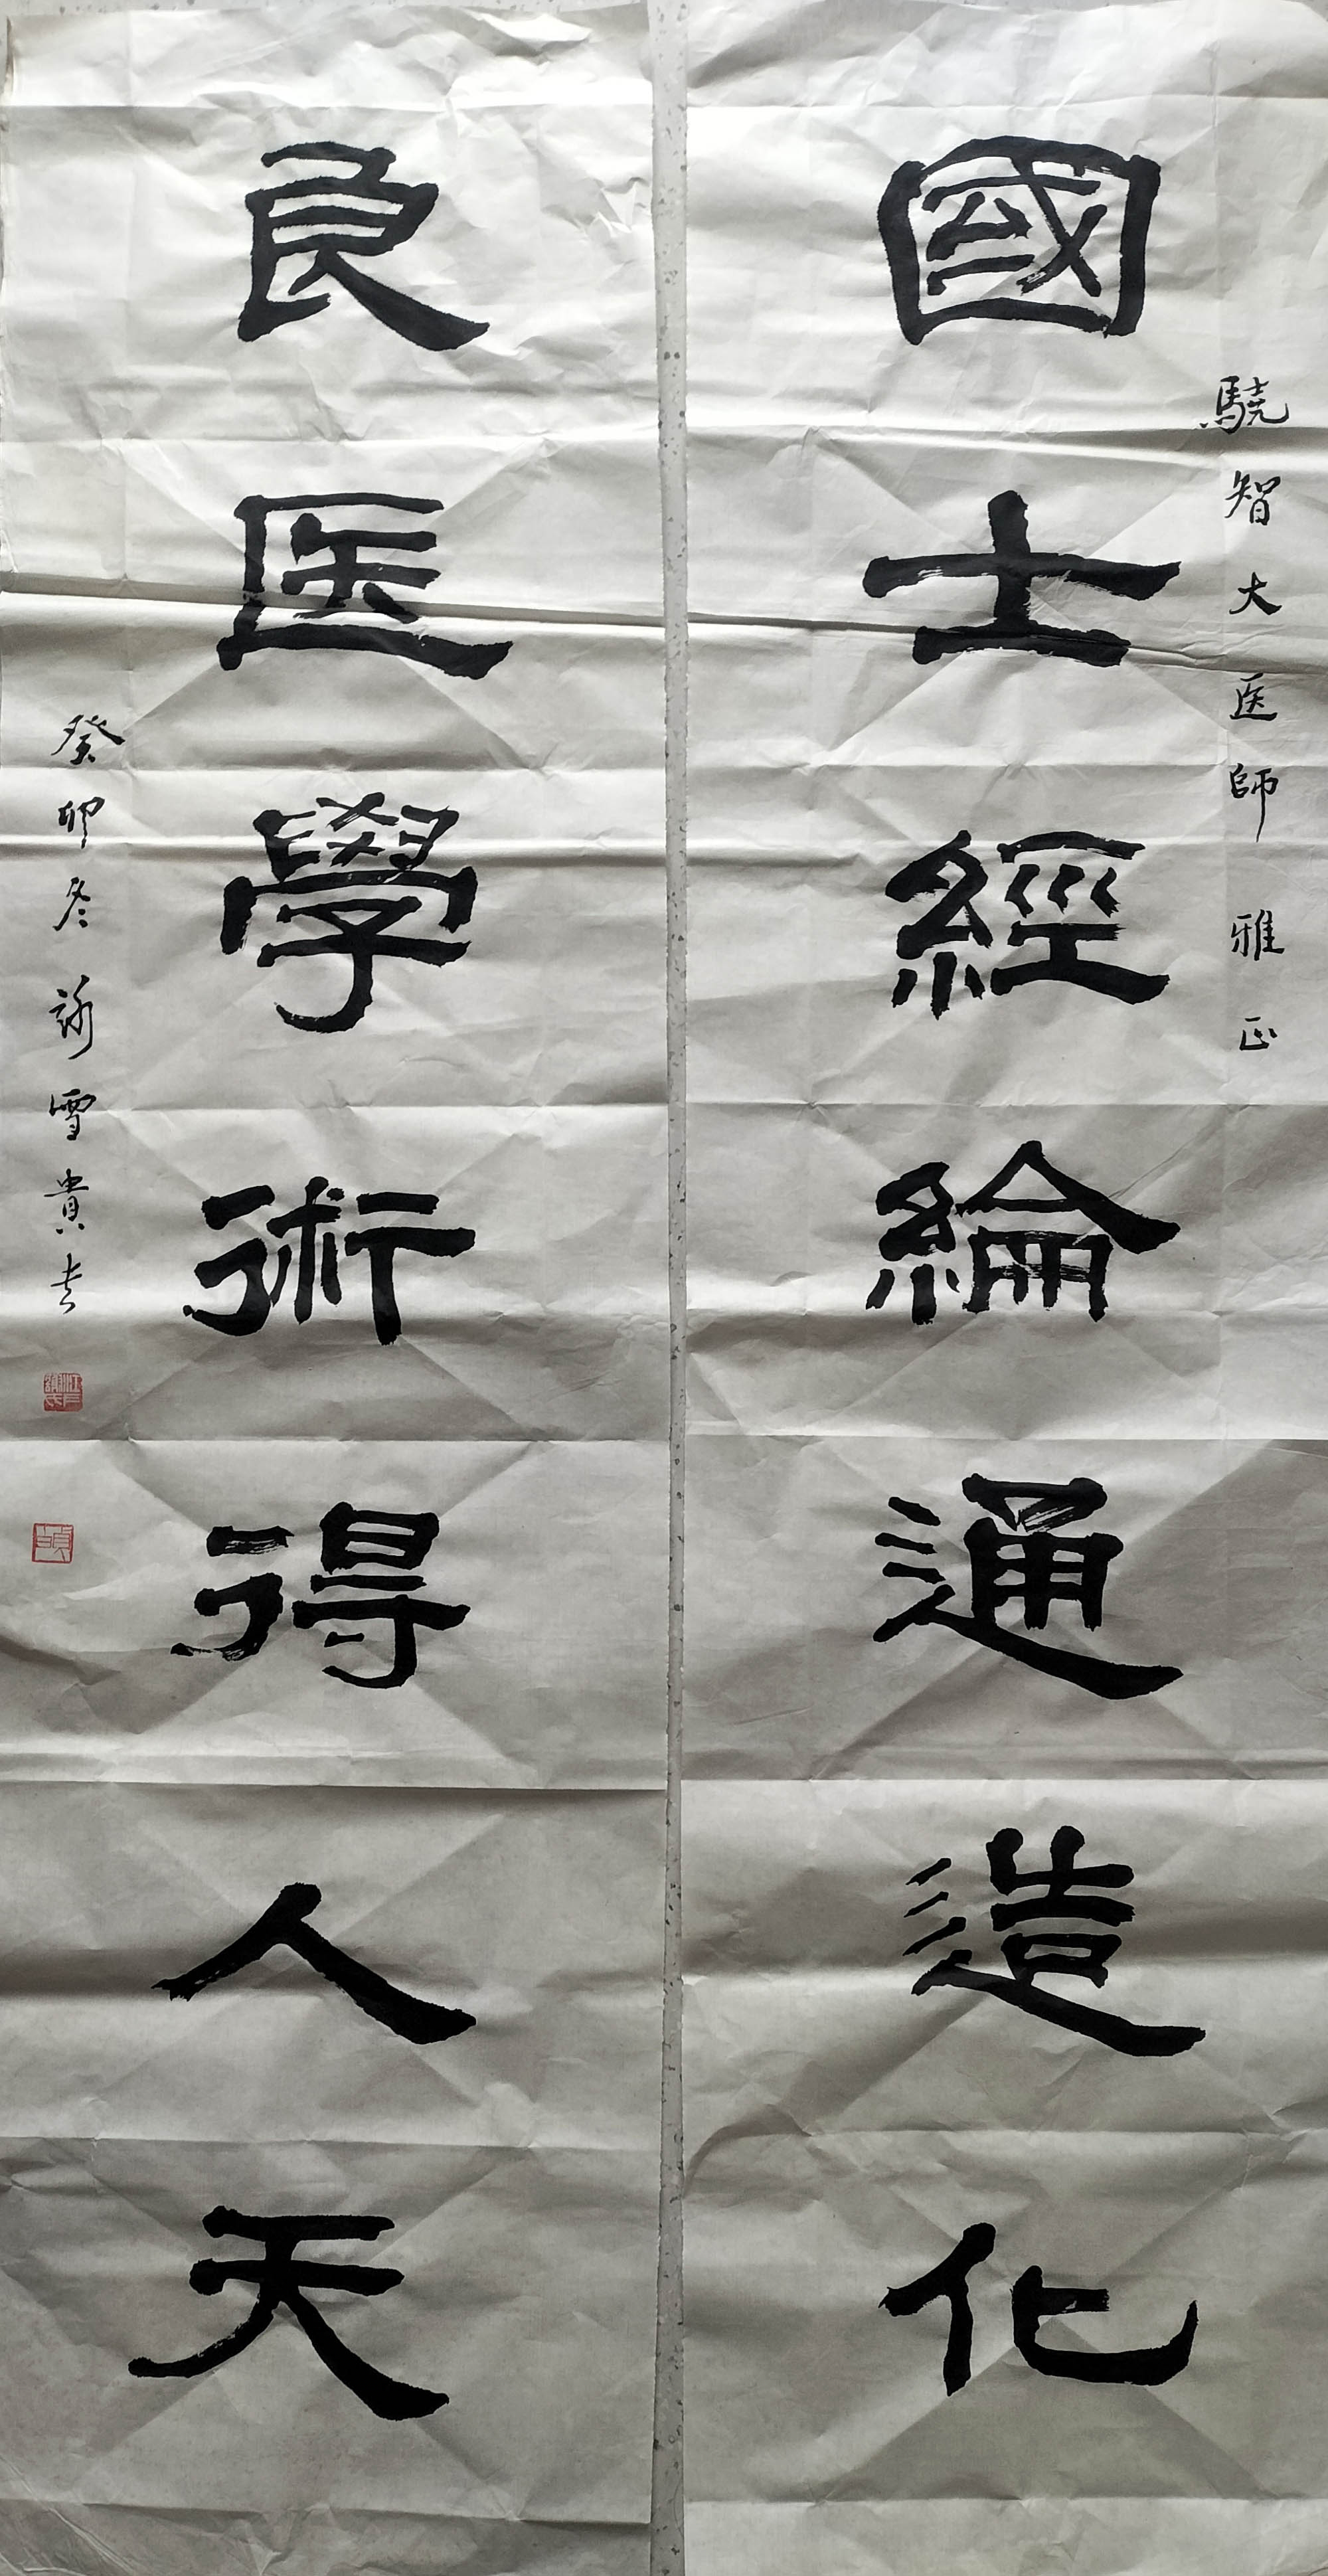 驍智大医師 雅正
國士經綸通造化
良医學術得人天
癸卯冬 詠雪貴書